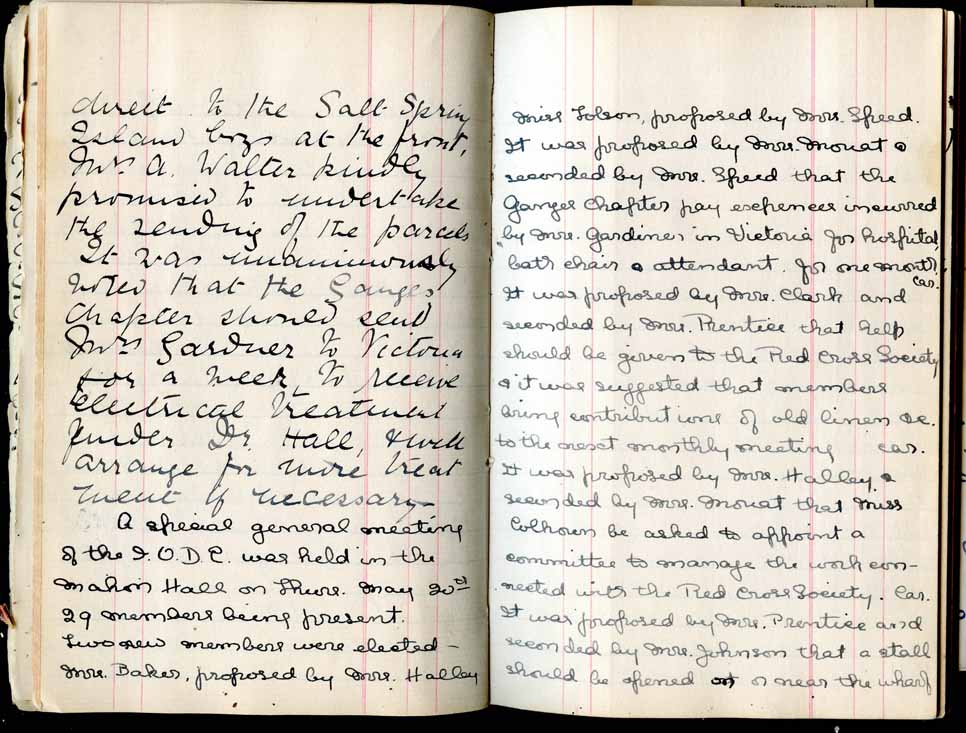 direct to the Salt Spring
Island boys at the front,
Mrs A. Walter kindly
promised to undertake
the sending of the parcels
It was unanimously
voted that the Ganges
Chapter should send
Mrs Gardner to Victoria
for a week, to receive
electrical treatment
under Dr. Hall, & will
arrange for more treat
ment if necessary
A special general meeting
of the I.O.D.E. was held in the
Mahon Hall on Thurs. May 20th
29 members being present.
Two new members were elected –
Mrs. Baker, proposed by Mrs. Halley
Miss Tolson, proposed by Mrs. Speed.
It was proposed by Mrs. Mouat &
seconded by Mrs. Speed that the
Ganges Chapter pay expences incurred
by Mrs. Gardiner in Victoria for hospital,
bath chair & attendant. for one month.
Car.
It was proposed by Mrs. Clark and
seconded by Mrs. Prentice that help
should be given to the Red Cross Society
& it was suggested that members
bring contributions of old linen &c.
to the next monthly meeting car.
It was proposed by Mrs. Halley &
seconded by Mrs. Mouat that Miss
Colhoun be asked to appoint a
committee to manage the work con-
nected with the Red Cross Society. Car.
It was proposed by Mrs. Prentice and
seconded by Mrs. Johnson that a stall
should be opened on or near the wharf